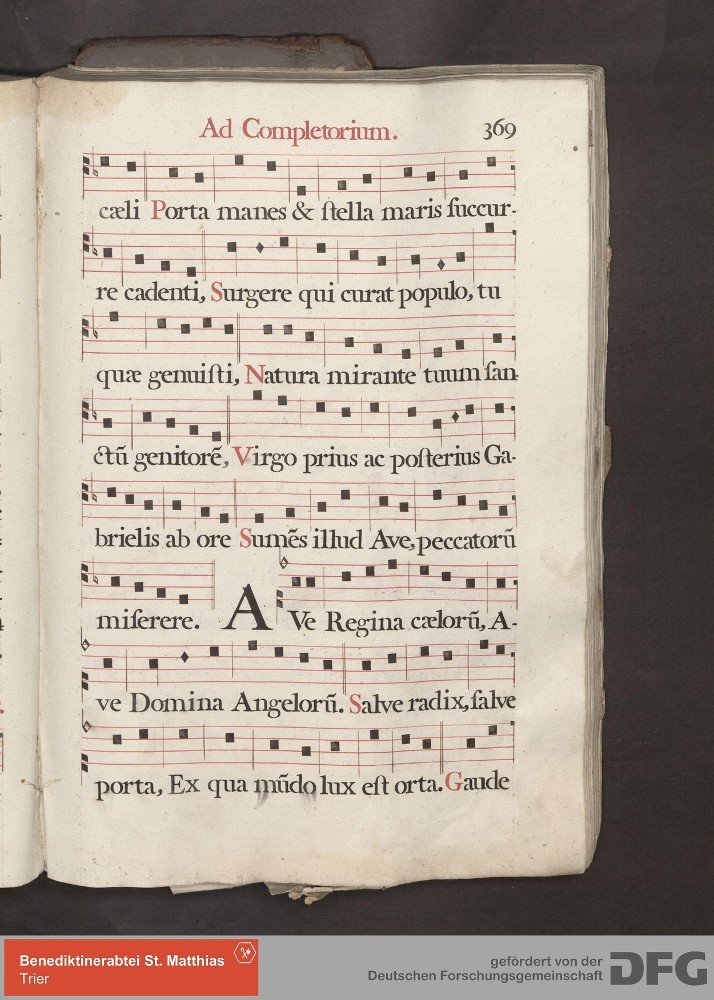 Ad Completorium.
369
cæli Porta manes & ſtella maris ſuccur-
re cadenti, Surgere qui curat populo, tu
quæ genuiſti, Natura mirante tuum ſan-
ctũ genitorẽ, Virgo prius ac poſterius Ga-
brielis ab ore Sumẽs illud Ave, peccatorũ
miſerere. AVe Regina cælorũ, A-
ve Domina Angelorũ. Salve radix, ſalve
porta, Ex qua mũdo lux eſt orta. Gaude
Benediktinerabtei St. Matthias
Trier
gefördert von der
Deutschen Forschungsgemeinschaft
DFG